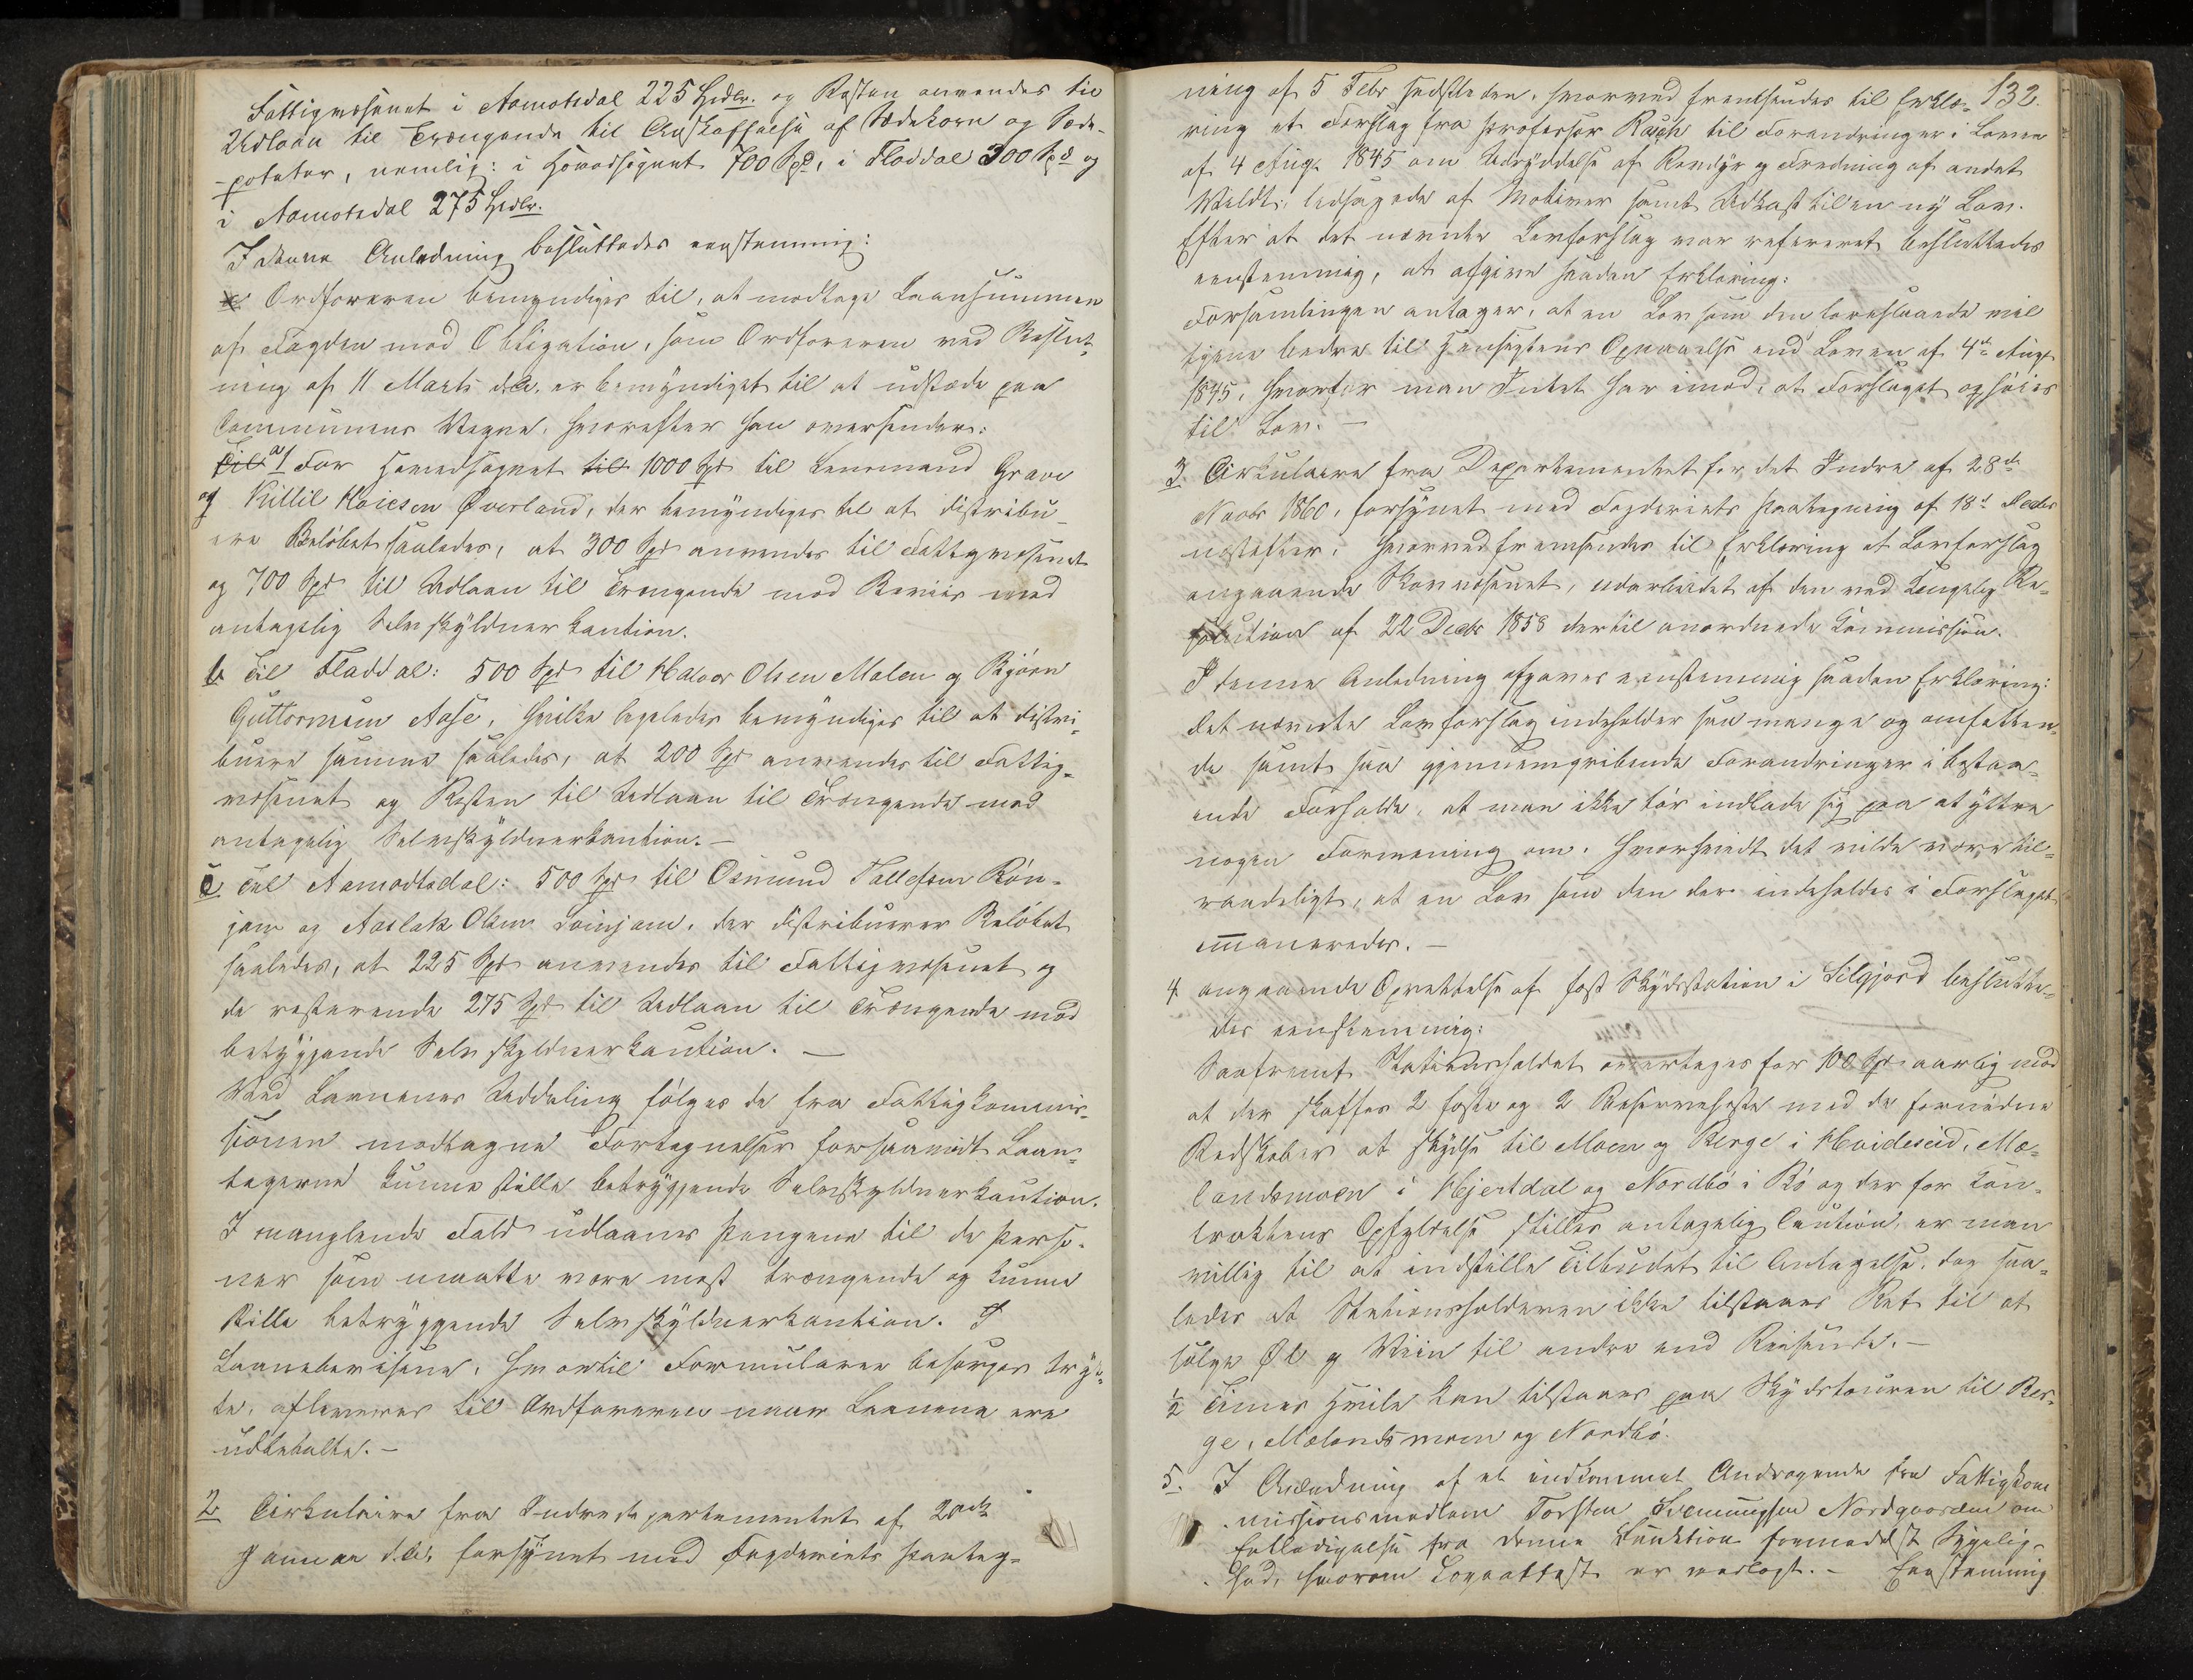 Fattigvæsenet i Aamotsdal 225 Spdlr. og Resten anvendes til
Udlaan til Trængende til Anskaffelse af Sædekorn og Sæde-
-poteter, nemlig: i Hovedsognet 700 Spd, i Fladdal 300 Spd og
i Aamotsdal 275 Spdlr.
I denne Anledning besluttedes eenstemmig:
Ordføreren bemyndiges til, at modtage Laansummen
af Fogden mod Obligation, som Ordføreren ved Beslut-
ning af 11 Marts d.A. er bemyndiget til at udstede paa
Communens Vegne, hvorefter han oversender:
a/ For Hovedsognet 1000 Spd til Lensmand Grave
og Killil Høiesen Øverland, der bemyndiges til at distribu-
ere Beløbet saaledes, at 300 Spd anvendes til Fattigvæsenet
og 700 Spd til Udlaan til Trængende mod Beviis med
antagelig Selvskyldnerkaution.
b Til Fladdal: 500 Spd til Halvor Olsen Molen og Bjørn
Guttormsen Aase, hvilke ligeledes bemyndiges til at distri-
buere samme saaledes, at 200 Spd anvendes til Fattig-
væsenet og Resten til Udlaan til Trængende mod
antagelig Selvskyldnerkaution. —
c Til Aamodtsdal: 500 Spd til Osmund Tallefsen Røn-
jom og Aaslak Olsen Loinjom, der distribuerer Beløbet
saaledes, at 225 Spd anvendes til Fattigvæsenet og
de resterende 275 Spd til Udlaan til Trængende mod
betryggende Selvskyldnerkaution. —
Ved Laanenes Uddeling følges de fra Fattigkommis-
sionen modtagne Fortegnelser forsaavidt Laan-
tagerne kunne stille betryggende Selvskyldnerkaution.
I manglende Fald udlaanes Pengene til de Perso-
ner som maatte være mest trængende og kunne
stille betryggende Selvskyldnerkaution. I
Laanebeviserne, hvortil Formularer besørges tryk-
te, afleveres til Ordføreren naar Laanene ere
udbetalte. —
2 Cirkulaire fra Indredepartementet af 20de
Januar d.A. forsynet med Fogderiets Paateg-
132.
ning af 5 Febr sidstleden, hvorved fremsendes til Erklæ-
ring et Forslag fra Professor Rasch til Forandringer i Loven
af 4 Aug. 1845 om Udryddelse af Rovdyr og Fredning af andet
Vildt, ledsagede af Motiver samt Udkast til en ny Lov.
Efter at det nævnte Lovforslag var refereret besluttedes
eenstemmig, at afgive saadan Erklæring:
Forsamlingen antager, at en Lov som den foreslaaede vil
tjene bedre til Hensigtens Opnaaelse end Loven af 4de Aug.
1845, hvorfor man Intet har imod, at Forslaget ophøies
til Lov. —
3. Cirkulaire fra Departementet for det Indre af 28de
Novbr 1860, forsynet med Fogderiets Paategning af 18d Decbr
næstefter, hvorved fremsendes til Erklæring et Lovforslag
angaaende Skovvæsenet, udarbeidet af den ved Kongelig Re-
solution af 22 Decbr 1858 dertil anordnede Kommission.
I denne Anledning afgaves eenstemmig saadan Erklæring:
Det nævnte Lovforslag indeholder saa mange og omfatten-
de samt saa gjennemgribende Forandringer i bestaa-
ende Forholde, at man ikke tør indlade sig paa at yttre
nogen Formening om, hvorvidt det vilde være til-
raadeligt, at en Lov som den der indeholdes i Forslaget
emaneredes. —
4 angaaende Oprettelse af fast Skydsstation i Silgjord beslutte-
des eenstemmig:
Saafremt Stationsholdet overtages for 100 Spd aarlig mod
at der skaffes 2 faste og 2 Reserveheste med de fornødne
Redskaber at skydse til Moen og Berge i Hvideseid, Mæ-
landsmoen i Hjertdal og Nordbø i Bø og der for Kon-
traktens Opfyldelse stilles antagelig Caution, er man
villig til at indstille Tilbudet til Antagelse, dog saa-
ledes at Stationsholderen ikke tilstaaes Ret til at
sælge Øl og Viin til andre end Reisende. —
½ Times Hvile kan tilstaaes paa Skydstouren til Ber-
ge, Mælandsmoen og Nordbø.
5. I Anledning af et indkommet Andragende fra Fattigkom
missionsmedlem Torsten Svenungsen Nordgaarden om
Entledigelse fra denne Funktion formedelst Sygelig-
hed, hvorom Lægeattest er vedlagt. – Eenstemmig